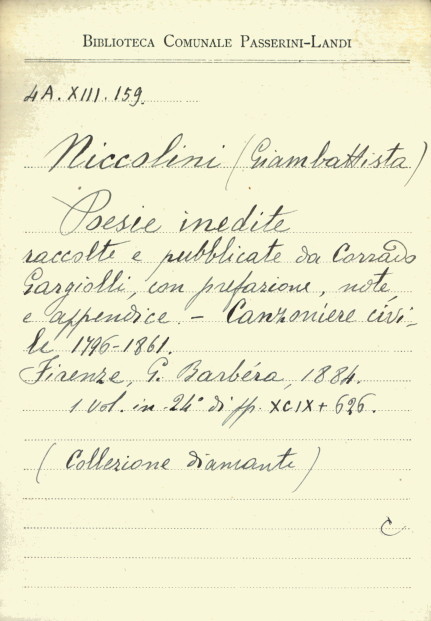 BIBLIOTECA COMUNALE PASSERINI-LANDI
4A. XIII. 159.
Niccolini (Giambattista)
Poesie inedite
raccolte e pubblicate da Corrado
Gargiolli, con prefazione, note
e appendice. - Canzoniere civi-
le 1796-1861.
Firenze, G. Barbéra, 1884.
1 vol. in-24° di pp. XCIX + 626.
(Collezione diamante)
C